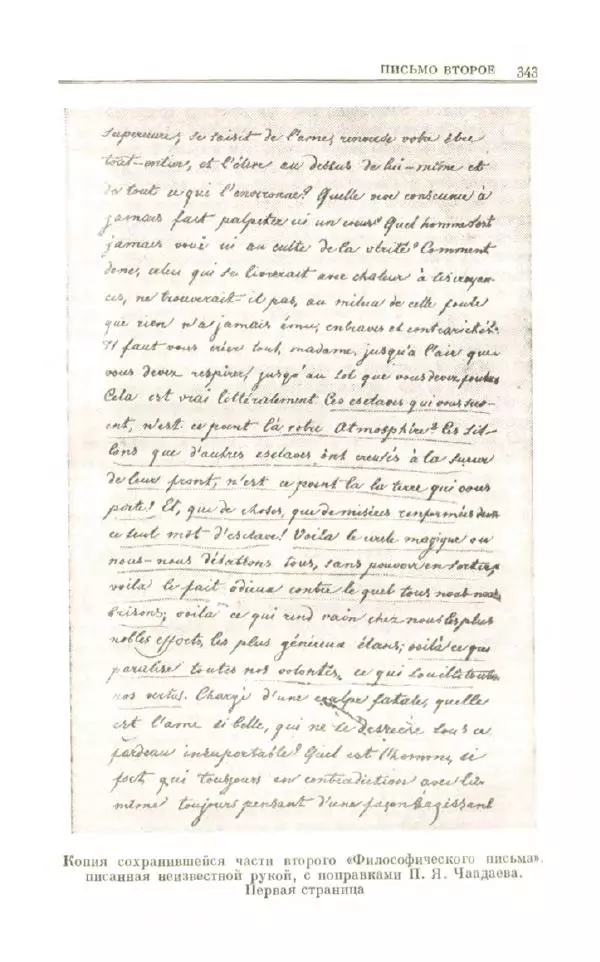 ПИСЬМО ВТОРОЕ 343
superieure, se saisit de l'ame, renverse votre être
tout-entier, et l'élève au dessus de lui-même et
de tout ce qui l'environne? Quelle vive conscience a
jamais fait palpiter ici un coeur? Quel homme s'est
jamais voué ici au culte de la vérité? Comment
donc, celui qui se livrerait avec chaleur à ses croyan-
ces, ne trouverait-il pas, au milieu de cette foule
que rien n'a jamais ému, entraves et contrariétés?
Il faut vous créer tout, madame, jusqu'à l'air que
vous devez respirer, jusqu'au sol que vous devez fouler.
Cela est vrai littéralement Ces esclaves qui vous ser-
ent, n'est ce point là votre atmosphère? Les sil-
lons que d'autres esclaves ont creusés à la sueur
de leur front, n'est ce point la la terre qui vous
porte! Et, que de choses, que de misères renfermées dans
ce seul mot d'esclave! Voilà le cercle magique ou
nous-nous débattons tous, sans pouvoir en sortir,
voilà le fait odieux contre le quel tous nous nous
brisons; voilà ce qui rend vain chez nous les plus
nobles efforts, les plus généreux élans; voilà ce qui
paralise toutes nos volontés, ce qui souille toutes
nos vertus. Chargé d'une coulpe fatale, quelle
est l'ame si belle, qui ne se desseche sous ce
fardeau insuportable? Quel est l'homme, si
fort qui toujours en contradiction avec lui-
même toujours pensant d'une façon & agissant
Копия сохранившейся части второго «Философического письма»,
писанная неизвестной рукой, с поправками П. Я. Чаадаева.
Первая страница